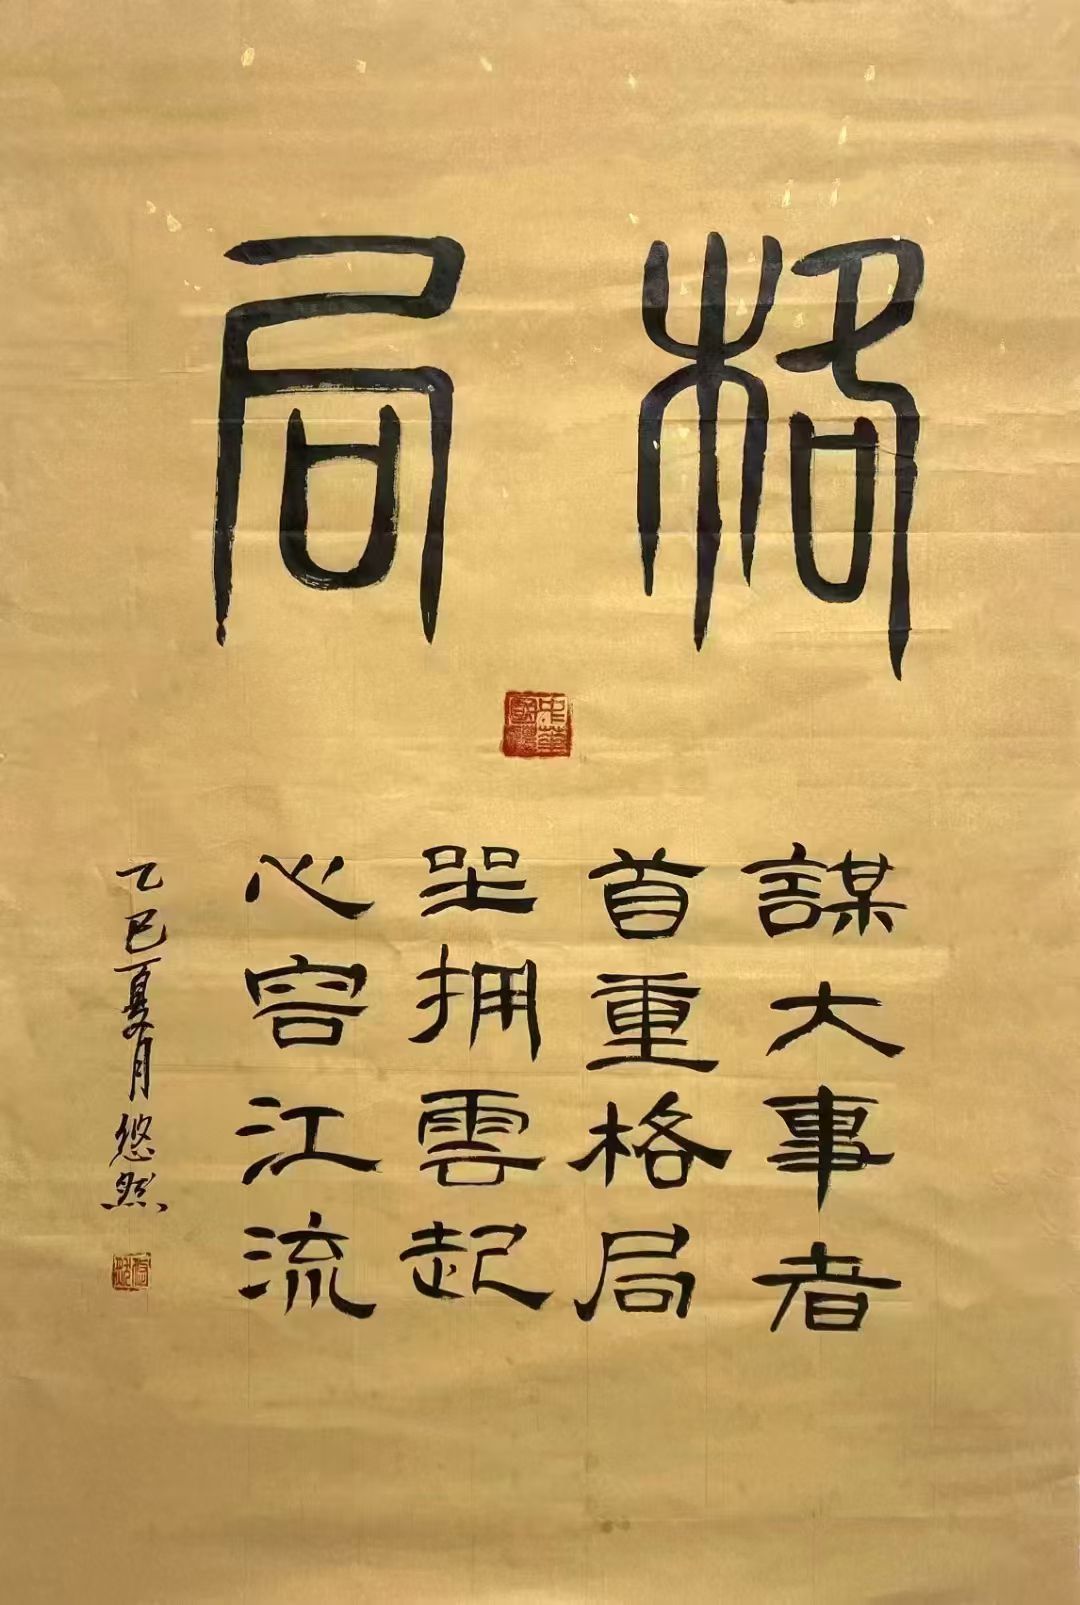 格局
謀大事者
首重格局
坐拥雲起
心容江流
乙巳夏月悠然